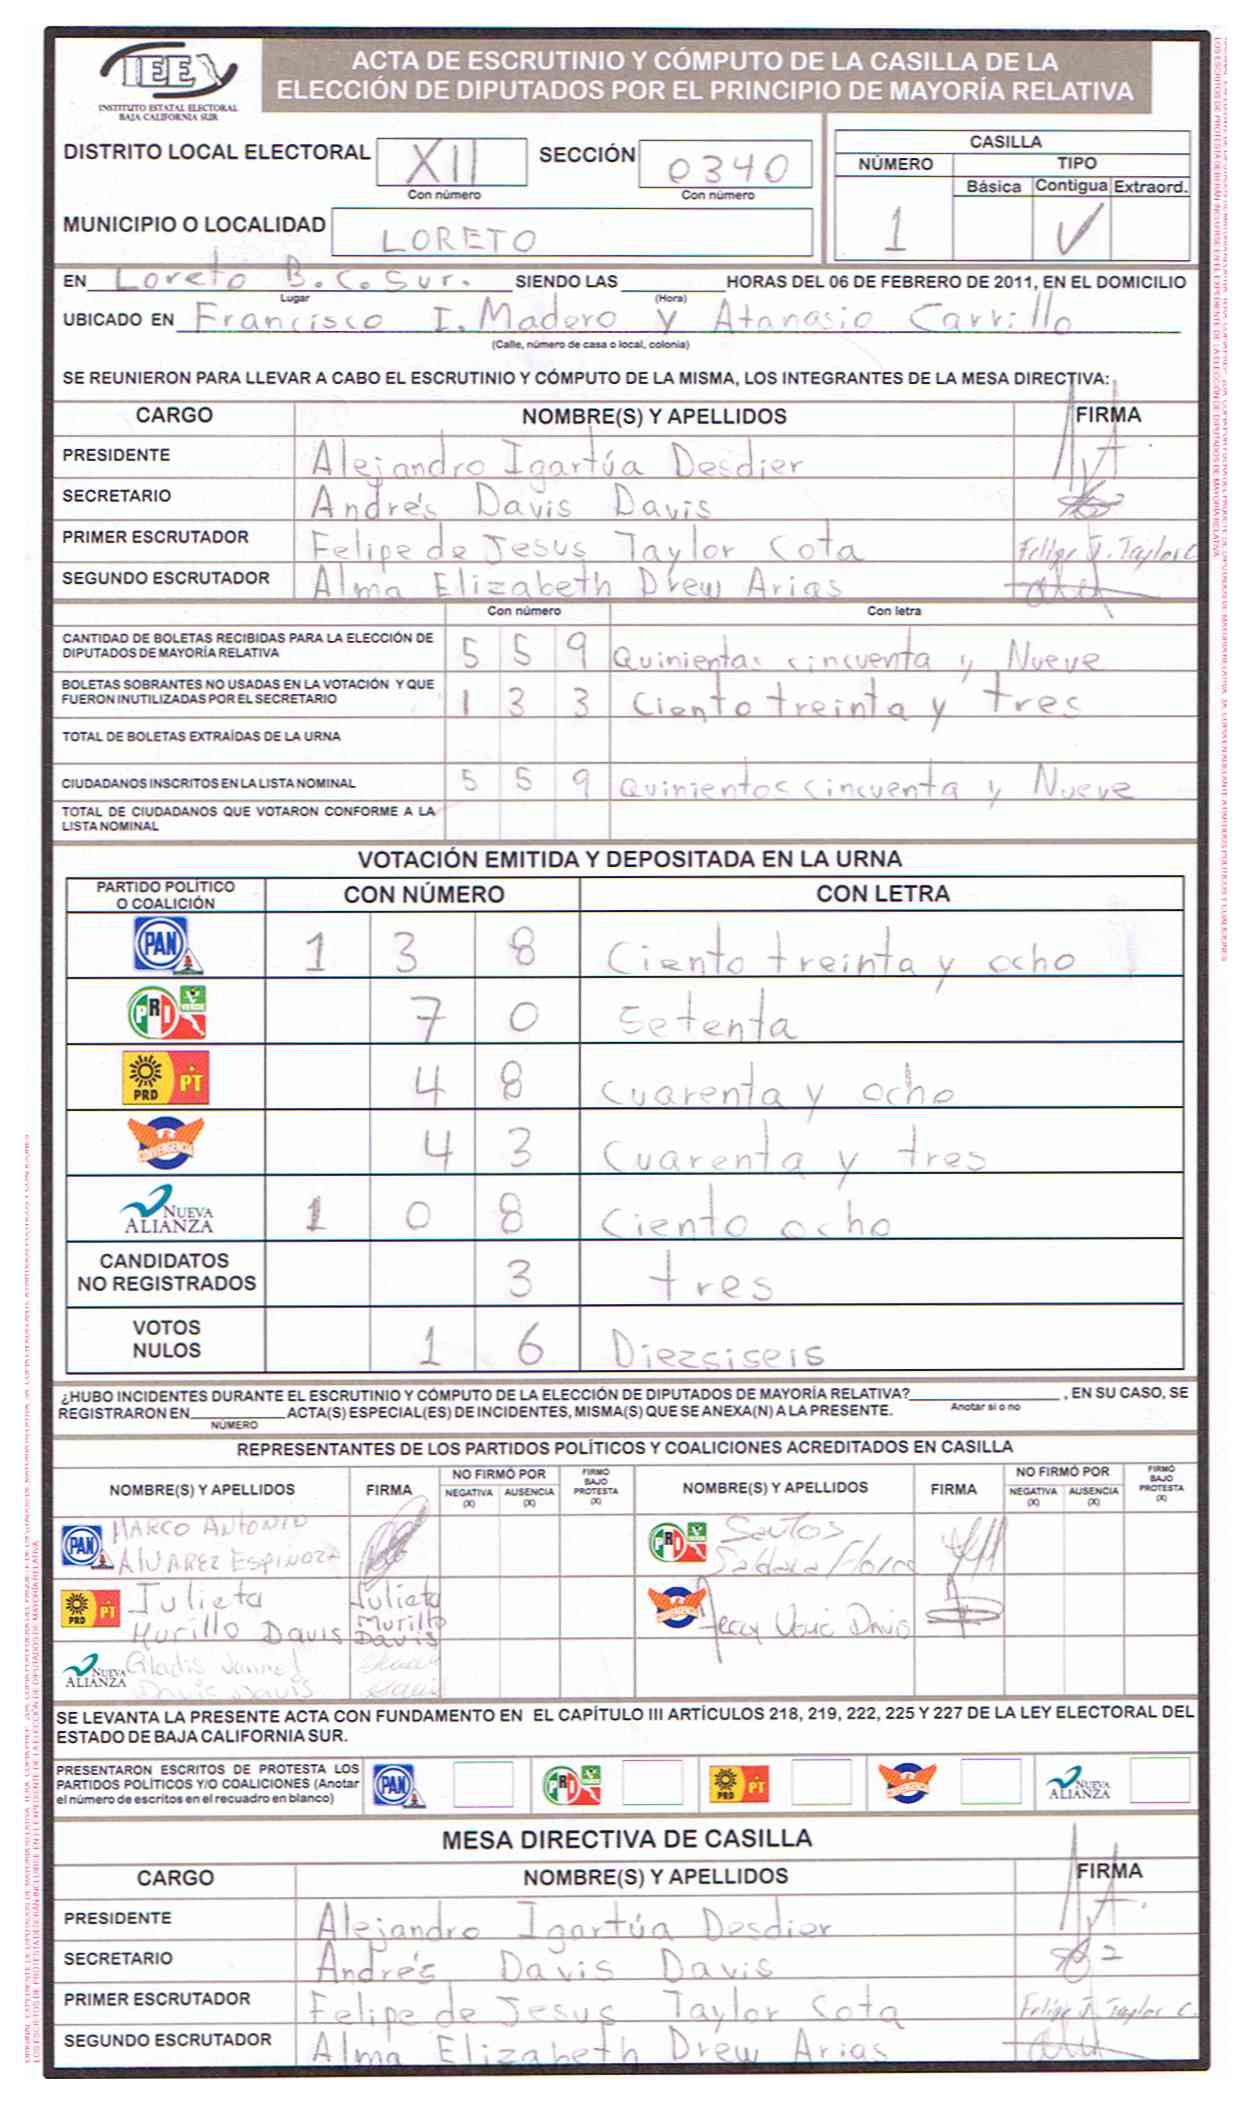 IEE
INSTITUTO ESTATAL ELECTORAL
BAJA CALIFORNIA SUR
ACTA DE ESCRUTINIO Y CÓMPUTO DE LA CASILLA DE LA
ELECCIÓN DE DIPUTADOS POR EL PRINCIPIO DE MAYORÍA RELATIVA
DISTRITO LOCAL ELECTORAL XII SECCIÓN 0340
Con número Con número
MUNICIPIO O LOCALIDAD LORETO
CASILLA
NÚMERO TIPO
Básica Contigua Extraord.
1 ✓
EN Loreto B.C.Sur. SIENDO LAS HORAS DEL 06 DE FEBRERO DE 2011, EN EL DOMICILIO
Lugar (Hora)
UBICADO EN Francisco I. Madero y Atanasio Carrillo
(Calle, número de casa o local, colonia)
SE REUNIERON PARA LLEVAR A CABO EL ESCRUTINIO Y CÓMPUTO DE LA MISMA, LOS INTEGRANTES DE LA MESA DIRECTIVA:
CARGO NOMBRE(S) Y APELLIDOS FIRMA
PRESIDENTE Alejandro Igartúa Desdier
SECRETARIO Andrés Davis Davis
PRIMER ESCRUTADOR Felipe de Jesus Taylor Cota Felipe J. Taylor C.
SEGUNDO ESCRUTADOR Alma Elizabeth Drew Arias
Con número Con letra
CANTIDAD DE BOLETAS RECIBIDAS PARA LA ELECCIÓN DE
DIPUTADOS DE MAYORÍA RELATIVA 5 5 9 Quinientas cincuenta y Nueve
BOLETAS SOBRANTES NO USADAS EN LA VOTACIÓN Y QUE
FUERON INUTILIZADAS POR EL SECRETARIO 1 3 3 Ciento treinta y tres
TOTAL DE BOLETAS EXTRAÍDAS DE LA URNA
CIUDADANOS INSCRITOS EN LA LISTA NOMINAL 5 5 9 Quinientos cincuenta y Nueve
TOTAL DE CIUDADANOS QUE VOTARON CONFORME A LA
LISTA NOMINAL
VOTACIÓN EMITIDA Y DEPOSITADA EN LA URNA
PARTIDO POLÍTICO
O COALICIÓN CON NÚMERO CON LETRA
PAN 1 3 8 Ciento treinta y ocho
PRI VERDE 7 0 Setenta
PRD PT 4 8 Cuarenta y ocho
CONVERGENCIA 4 3 Cuarenta y tres
NUEVA ALIANZA 1 0 8 Ciento ocho
CANDIDATOS
NO REGISTRADOS 3 tres
VOTOS
NULOS 1 6 Diezsiseis
¿HUBO INCIDENTES DURANTE EL ESCRUTINIO Y CÓMPUTO DE LA ELECCIÓN DE DIPUTADOS DE MAYORÍA RELATIVA? , EN SU CASO, SE
Anotar si o no
REGISTRARON EN ACTA(S) ESPECIAL(ES) DE INCIDENTES, MISMA(S) QUE SE ANEXA(N) A LA PRESENTE.
NÚMERO
REPRESENTANTES DE LOS PARTIDOS POLÍTICOS Y COALICIONES ACREDITADOS EN CASILLA
NOMBRE(S) Y APELLIDOS FIRMA NO FIRMÓ POR NEGATIVA (X) AUSENCIA (X) FIRMÓ BAJO PROTESTA (X) NOMBRE(S) Y APELLIDOS FIRMA NO FIRMÓ POR NEGATIVA (X) AUSENCIA (X) FIRMÓ BAJO PROTESTA (X)
PAN MARCO ANTONIO
ALVAREZ ESPINOZA
PRI VERDE Santos
PRD PT Julieta
Murillo Davis Julieta Murillo Davis
CONVERGENCIA Davis
NUEVA ALIANZA Gladis
Davis Davis
SE LEVANTA LA PRESENTE ACTA CON FUNDAMENTO EN EL CAPÍTULO III ARTÍCULOS 218, 219, 222, 225 Y 227 DE LA LEY ELECTORAL DEL
ESTADO DE BAJA CALIFORNIA SUR.
PRESENTARON ESCRITOS DE PROTESTA LOS
PARTIDOS POLÍTICOS Y/O COALICIONES (Anotar
el número de escritos en el recuadro en blanco)
PAN PRI VERDE PRD PT CONVERGENCIA NUEVA ALIANZA
MESA DIRECTIVA DE CASILLA
CARGO NOMBRE(S) Y APELLIDOS FIRMA
PRESIDENTE Alejandro Igartúa Desdier
SECRETARIO Andrés Davis Davis
PRIMER ESCRUTADOR Felipe de Jesus Taylor Cota Felipe J. Taylor C.
SEGUNDO ESCRUTADOR Alma Elizabeth Drew Arias